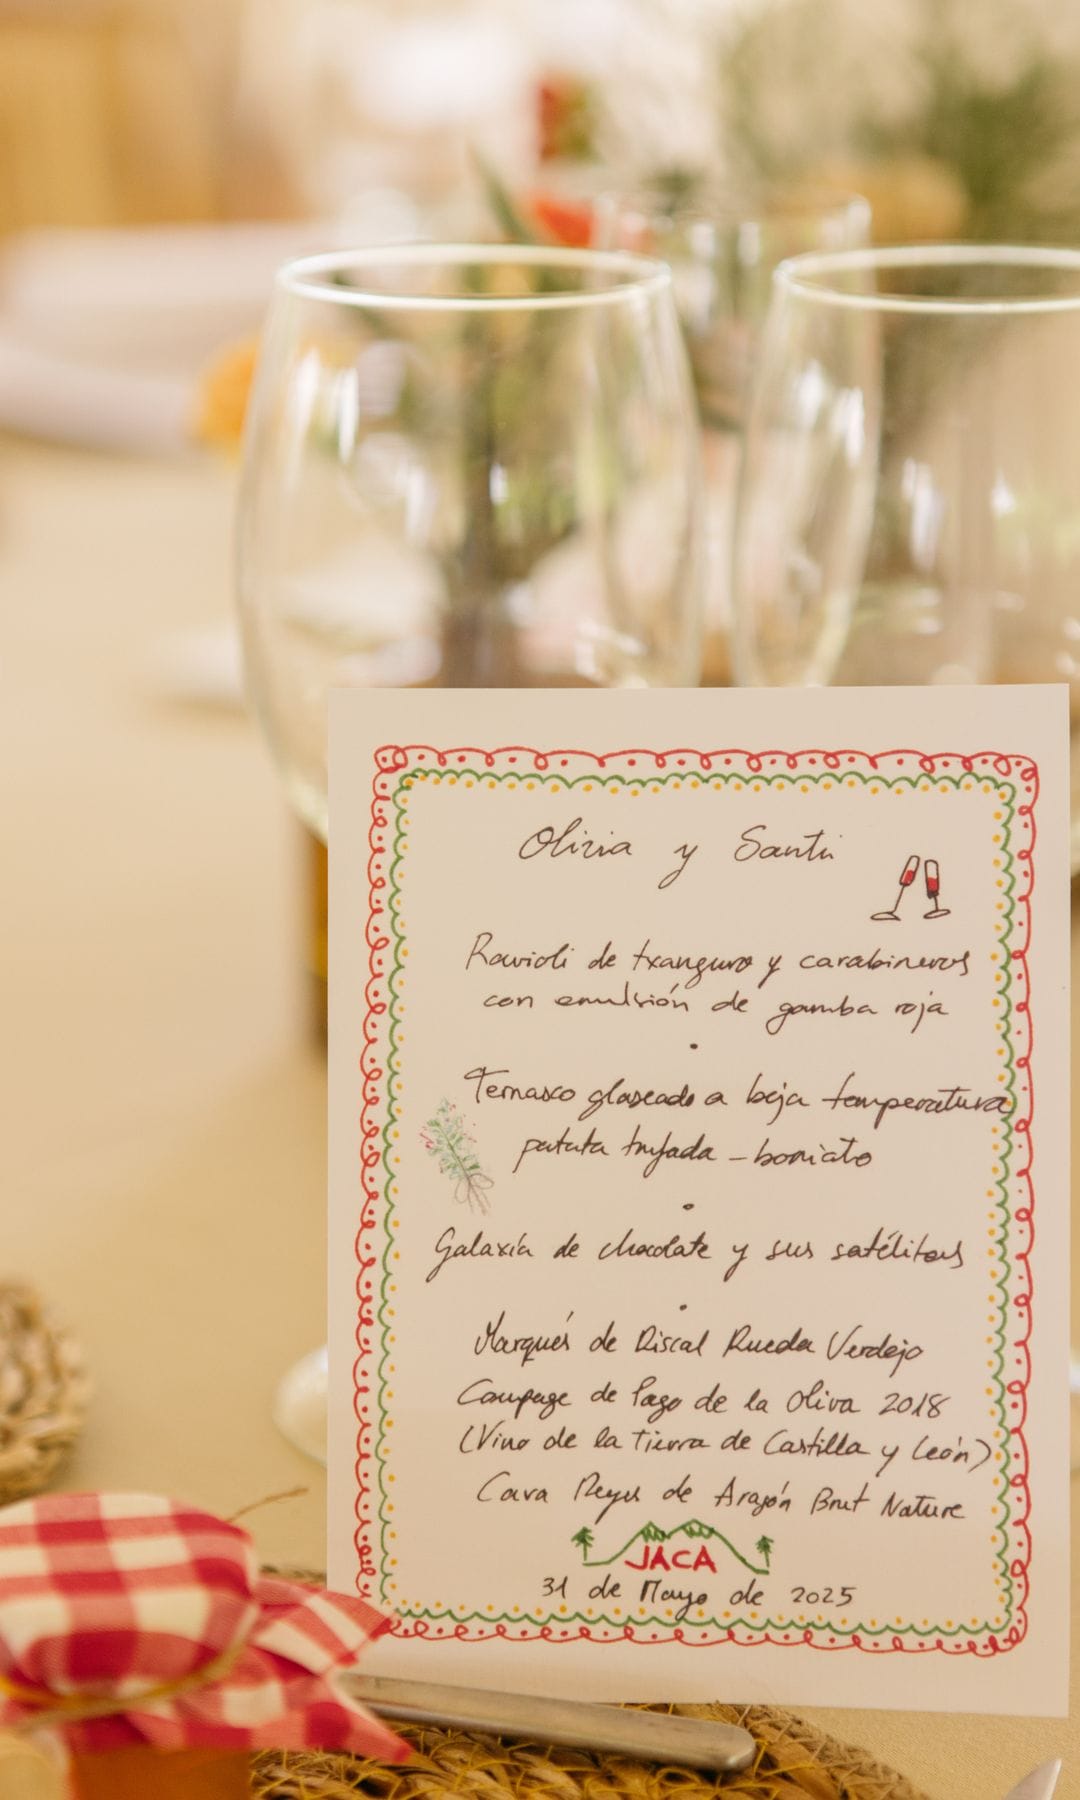 Olivia y Santi
Ravioli de txangurro y carabineros
con emulsión de gamba roja
Ternasco glaseado a baja temperatura
patata trufada - boniato
Galaxia de chocolate y sus satélites
Marqués de Riscal Rueda Verdejo
Coupage de Pago de la Oliva 2018
(Vino de la Tierra de Castilla y León)
Cava Reyes de Aragón Brut Nature
JACA
31 de Mayo de 2025